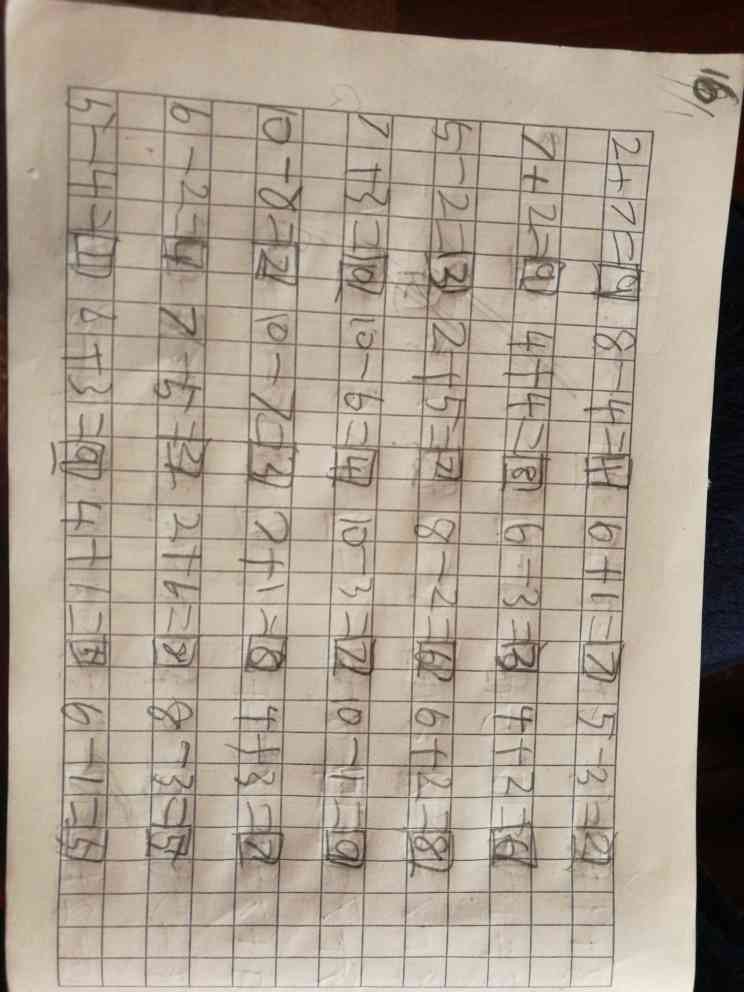 16
2+7=9 8-4=4 6+1=7 5-3=2
7+2=9 4+4=8 6-3=3 4+2=6
5-2=3 2+5=7 8-2=6 6+2=8
7+3=10 10-6=4 10-3=7 10-1=9
10-8=2 10-7=3 7+1=8 4+3=7
6-2=4 7-5=2 2+6=8 8-3=5
5-4=1 6+3=9 4+1=5 6-1=5